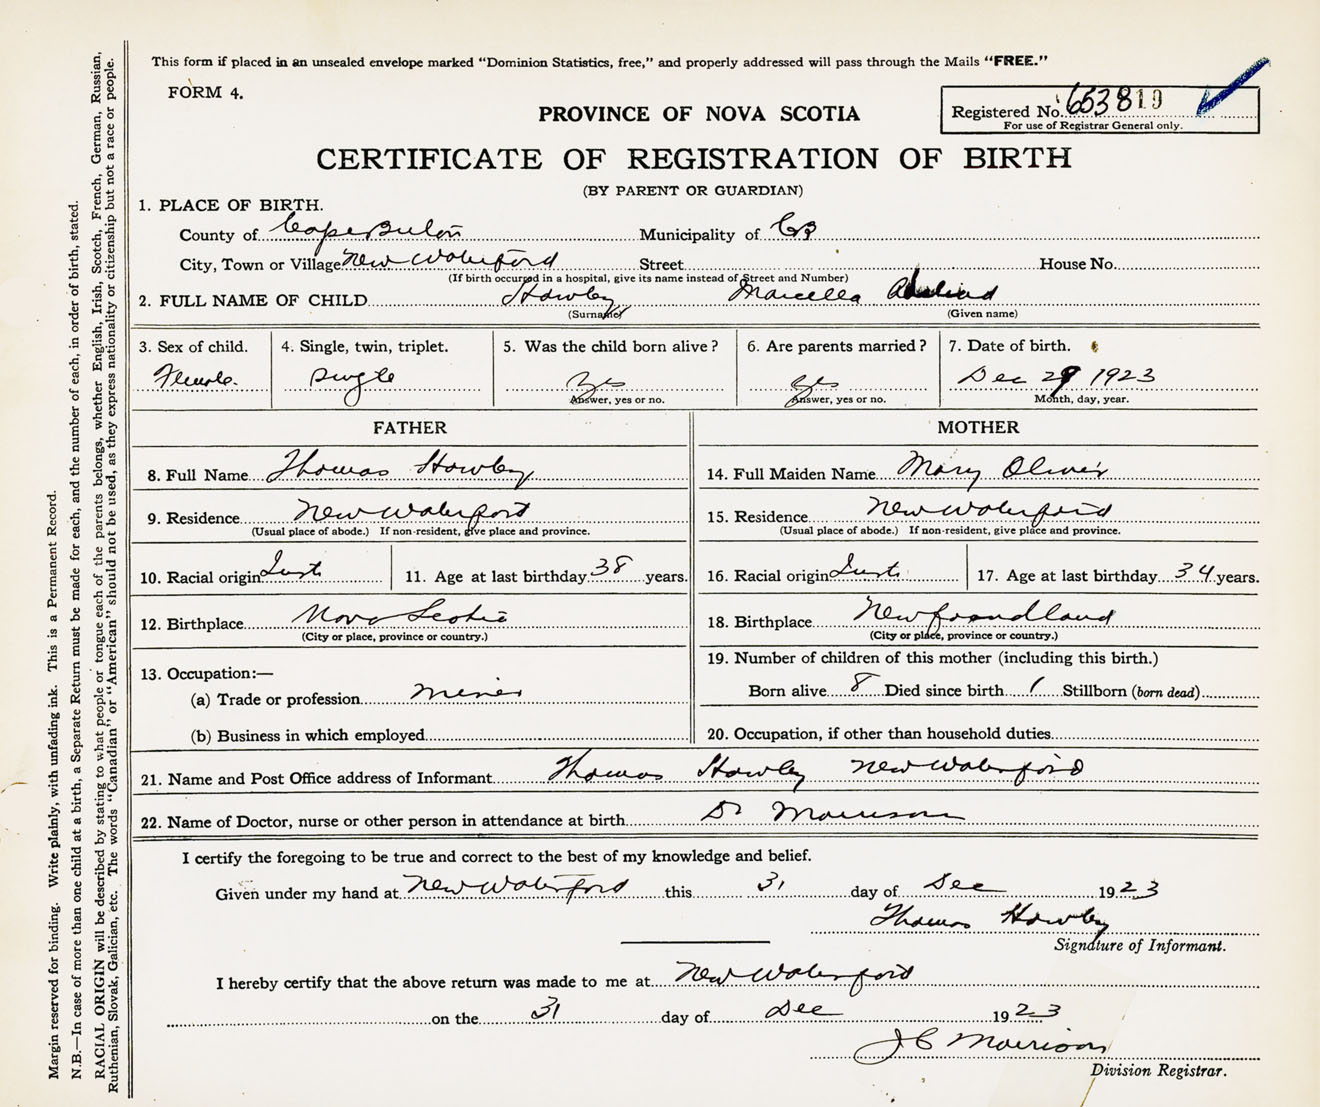 This form if placed in an unsealed envelope marked “Dominion Statistics, free,” and properly addressed will pass through the Mails “FREE.”
FORM 4.
Registered No. 653819
For use of Registrar General only.
PROVINCE OF NOVA SCOTIA
CERTIFICATE OF REGISTRATION OF BIRTH
(BY PARENT OR GUARDIAN)
1. PLACE OF BIRTH.
County of Cape Breton Municipality of CB
City, Town or Village New Waterford Street House No.
(If birth occurred in a hospital, give its name instead of Street and Number)
2. FULL NAME OF CHILD Howley Marcella
(Surname) (Given name)
3. Sex of child. 4. Single, twin, triplet. 5. Was the child born alive? 6. Are parents married? 7. Date of birth.
Female. single Yes yes Dec 29 1923
Answer, yes or no. Answer, yes or no. Month, day, year.
FATHER MOTHER
8. Full Name Thomas Howley 14. Full Maiden Name Mary Oliver
9. Residence New Waterford 15. Residence New Waterford
(Usual place of abode.) If non-resident, give place and province. (Usual place of abode.) If non-resident, give place and province.
10. Racial origin Irish 11. Age at last birthday 38 years. 16. Racial origin Irish 17. Age at last birthday 34 years.
12. Birthplace Nova Scotia 18. Birthplace Newfoundland
(City or place, province or country.) (City or place, province or country.)
13. Occupation:— 19. Number of children of this mother (including this birth.)
(a) Trade or profession miner Born alive 8 Died since birth 1 Stillborn (born dead)
(b) Business in which employed 20. Occupation, if other than household duties
21. Name and Post Office address of Informant Thomas Howley New Waterford
22. Name of Doctor, nurse or other person in attendance at birth Dr Morrison
I certify the foregoing to be true and correct to the best of my knowledge and belief.
Given under my hand at New Waterford this 31 day of Dec 1923
Thomas Howley
Signature of Informant.
I hereby certify that the above return was made to me at New Waterford
on the 31 day of Dec 1923
J C Morrison
Division Registrar.
Margin reserved for binding. Write plainly, with unfading ink. This is a Permanent Record.
N.B.—In case of more than one child at a birth, a Separate Return must be made for each, and the number of each, in order of birth, stated.
RACIAL ORIGIN will be described by stating to what people or tongue each of the parents belongs, whether English, Irish, Scotch, French, German, Russian,
Ruthenian, Slovak, Galician, etc. The words “Canadian” or “American” should not be used, as they express nationality or citizenship but not a race or people.